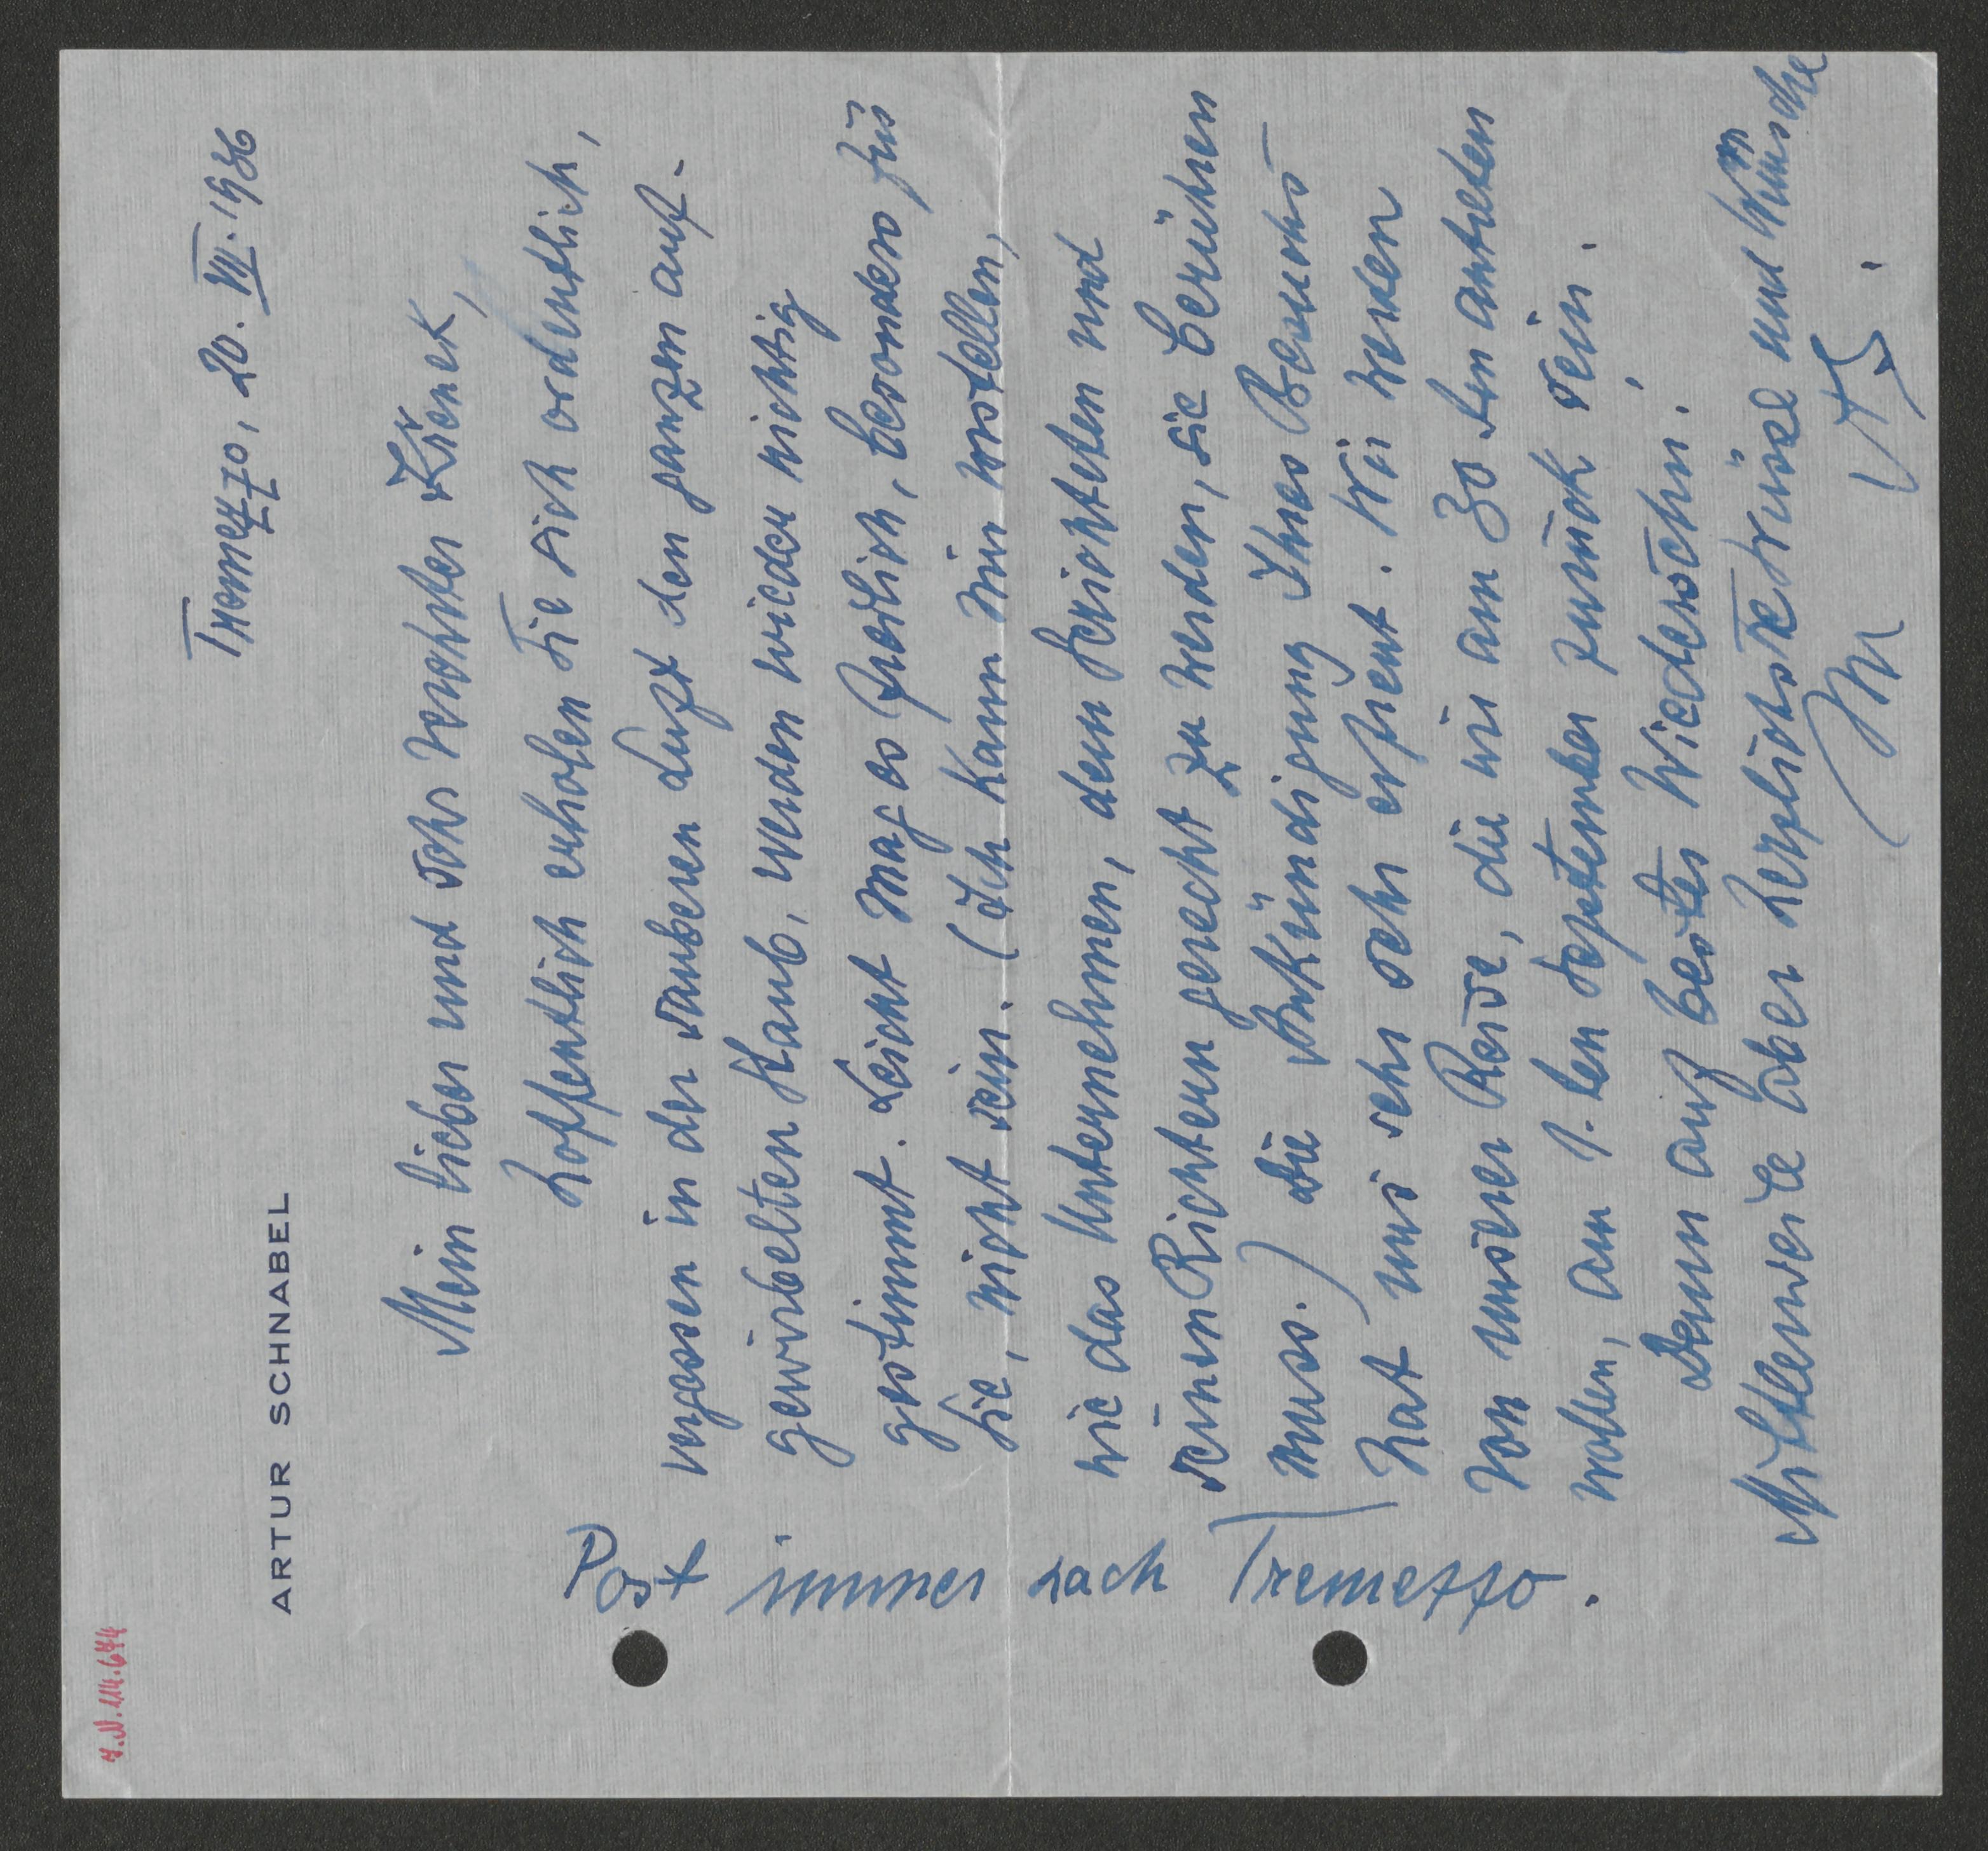 I.N. 114.644
ARTUR SCHNABEL
Tremezzo, 20. VII. 1936
Mein lieber und sehr verehrter Křenek,
hoffentlich erholen Sie sich ordentlich,
vergessen in der sauberen Luft den ganzen auf-
gewirbelten Staub, werden wieder richtig
gestimmt. Leicht mag es freilich, besonders für
Sie, nicht sein. (Ich kann mir vorstellen,
wie das Unternehmen, dem Berichteten und
seinen Richtern gerecht zu werden, sie berühren
muss.) Die Ankündigung Ihres Besuchs
hat uns sehr sehr erfreut. Wir werden
von unserer Reise, die wir am 30ten antreten
wollen, am 1. ten September zurück sein.
Denn auf bestes Wiedersehn!
Mittlerweile aber herzlichste Grüsse und Wünsche
Ihr AS.
Post immer nach Tremezzo.